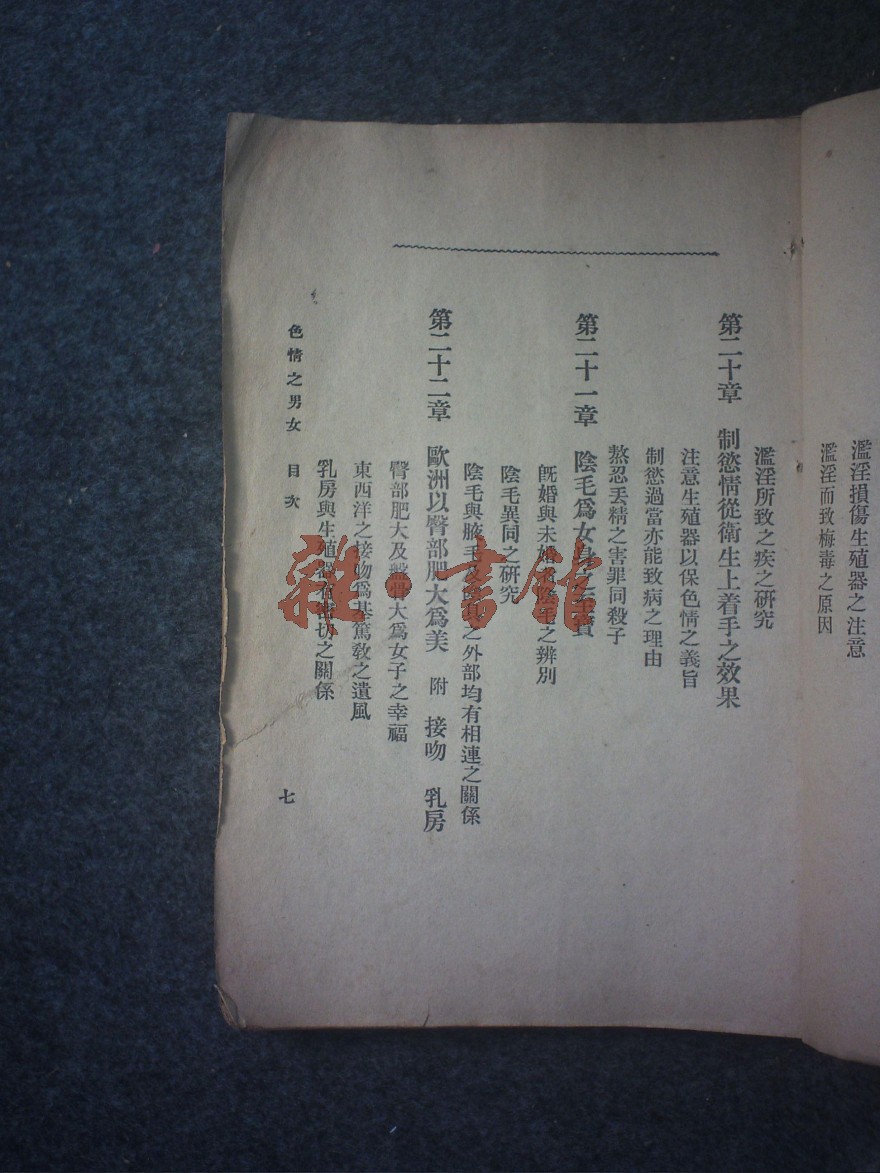 濫淫損傷生殖器之注意
濫淫而致梅毒之原因
濫淫所致之疾之研究
第二十章 制慾情從衛生上着手之效果
注意生殖器以保色情之義旨
制慾過當亦能致病之理由
熬忍丟精之害罪同殺子
第二十一章 陰毛爲女身之至寶
既婚與未婚者陰毛之辨別
陰毛異同之研究
陰毛與腋毛及之外部均有相連之關係
第二十二章 歐洲以臀部肥大爲美 附 接吻 乳房
臀部肥大及盤骨大爲女子之幸福
東西洋之接吻爲基篤敎之遺風
乳房與生殖器有密切之關係
色情之男女 目次
七
雜·書館